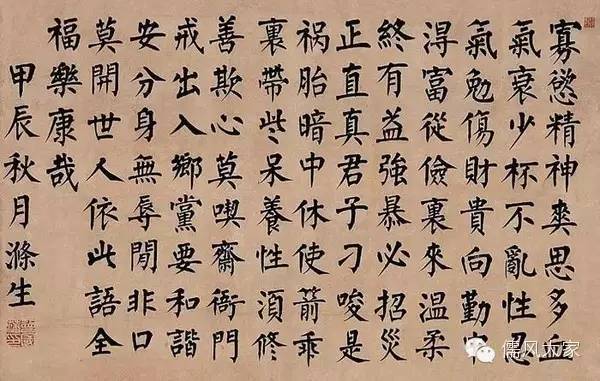 寡慾精神爽思多血
氣衰少杯不亂性忍
氣勉傷財貴向勤中
淂富從儉裏來温柔
終有益強暴必招災
正直真君子刁唆是
祸胎暗中休使箭乖
裏帶些呆養性湏修
善欺心莫喫齋衙門
戒出入鄉黨要和諧
安分身無辱閒非口
莫開世人依此語全
福樂康哉
甲辰秋月滌生
儒风大家